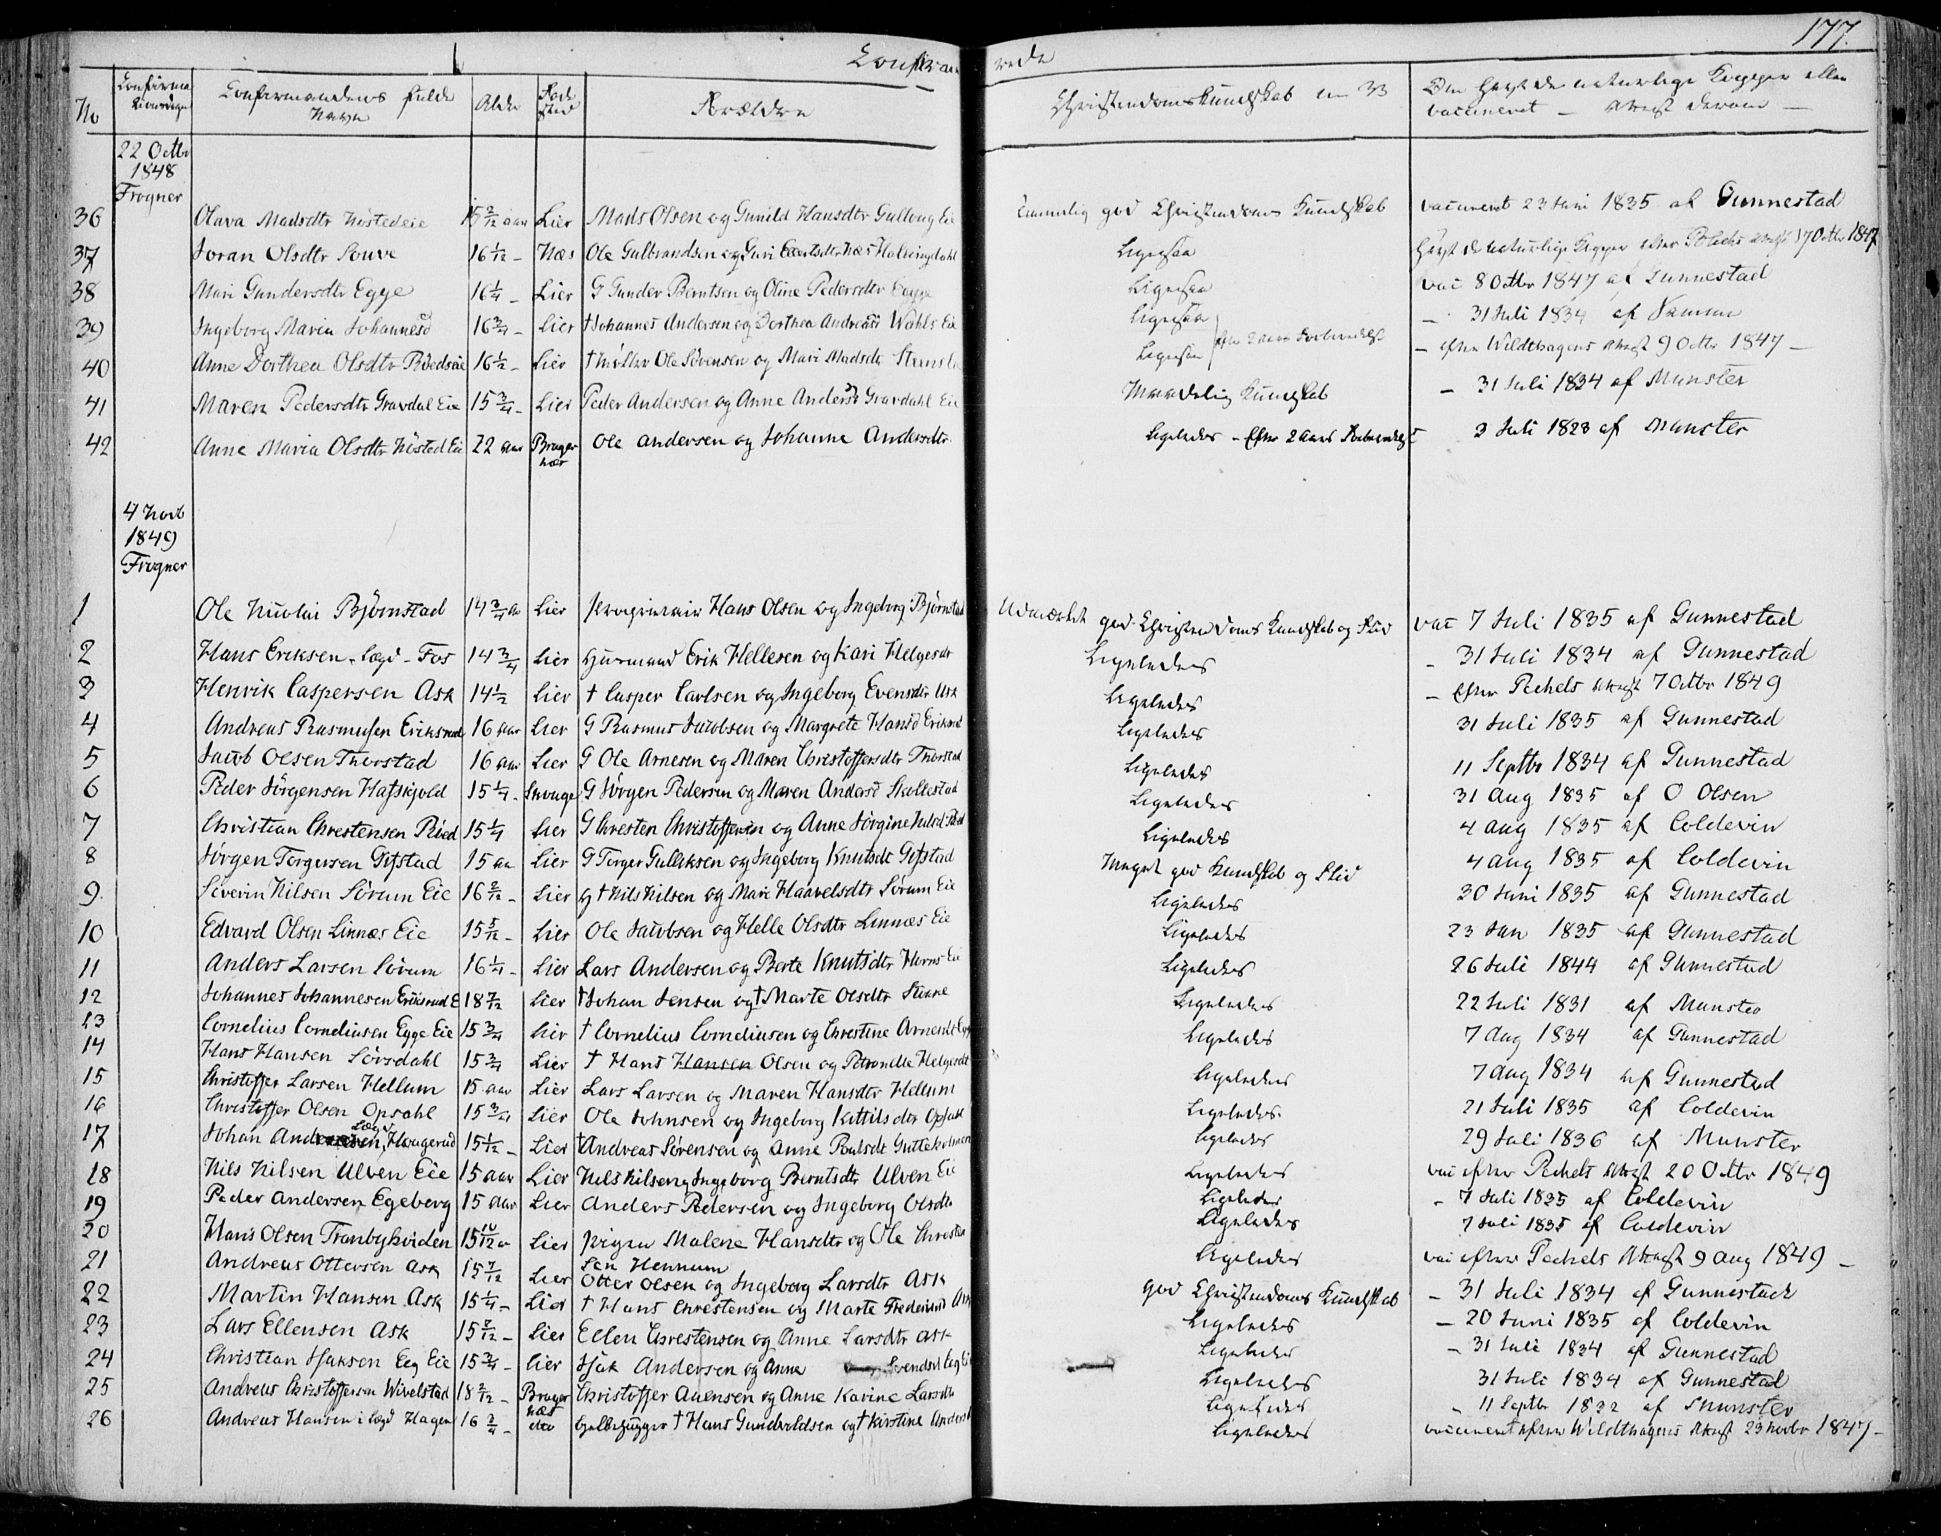 177.
Confirmerede
No Confirmationsdagen Confirmandens fulde Navn Alder Fødested Forældre Christendomskundskab Om havt de naturlige Kopper eller vaccineret — Attest derom —
22 Octbr 1848 Frogner
36 Olava Madsdtr Höstedeie 15 2/12 aar Lier Mads Olsen og Gunild Hansdtr Eie Temmelig god Christendoms Kundskab vaccineret 23 Juni 1835 af Gunnestad
37 Joran Olsdtr Souve 16 1/12 – Næs Ole Gulbrandsen og Guri Næs Hallingdahl Ligesaa havt de naturlige Kopper efter Attest 17 Octbr 1847
38 Mari Gundersdtr Egge 16 1/4 – Lier G Gunder Berntsen og Oline Pedersdtr Egge Ligesaa vac 8 Octbr 1847 af Gunnestad
39 Ingeborg Maria Johannesd 16 3/4 – Lier † Johannes Andersen og Dorthea Andreasd Wahls Eie Ligesaa – 31 Juli 1834 af
40 Anne Dorthea Olsdtr 16 1/2 – Lier † Ole Sörensen og Mari Madsdtr Ligesaa – efter Wildthagens Attest 9 Octbr 1847 –
41 Maren Pedersdtr Gravdal Eie 15 3/4 – Lier Peder Andersen og Anne Andersd Gravdahl Eie Maadelig Kundskab – 31 Juli 1834 af Munster
42 Anne Maria Olsdtr Hösted Ei 22 aar Bragernæs Ole Andersen og Johanne Andersdtr Ligeledes – Efter 2 Aars Forberedelse 3 Juli 1828 af Munster
4 Novb 1849 Frogner
1 Ole Nicolai Björnstad 14 3/4 aar Lier Hans Olsen og Ingeborg Björnstad Udmærket god Christendoms Kundskab og Flid vac 7 Juli 1835 af Gunnestad
2 Hans Eriksen Lægd – Fos 14 3/4 Lier Huusmand Erik Hellesen og Kari Helgesdtr Ligeledes – 31 Juli 1834 af Gunnestad
3 Henrik Caspersen Ask 14 1/2 Lier † Casper Carlsen og Ingeborg Evensdtr Ask Ligeledes – efter Pechels Attest 7 Octbr 1849
4 Andreas Rasmusen Eriksrud 16 aar Lier G Rasmus Jacobsen og Margrete Hansd Eriksrud Ligeledes 31 Juli 1835 af Gunnestad
5 Jacob Olsen Thorstad 16 aar Lier G Ole Arnesen og Maren Christoffersdtr Thorstad Ligeledes 11 Septbr 1834 af Gunnestad
6 Peder Jörgensen Hafskjold 15 1/4 – Skouge G Jörgen Pedersen og Maren Andersd Skallestad Ligeledes 31 Aug 1835 af O Olsen
7 Christian Chrestensen 15 1/4 Lier G Chresten Christoffersen og Anne Jörgine Ligeledes 4 Aug 1835 af Coldevin
8 Jörgen Torgersen Gifstad 15 aar Lier G Torger Gulliksen og Ingeborg Knutsdt Gifstad Meget god Kundskab og Flid 4 Aug 1835 af Coldevin
9. Severin Nilsen Sörum Eie 16 2/12 – Lier G † Nils Nilsen og Mari Haavelsdtr Sörum Eie Ligeledes 30 Juni 1835 af Gunnestad
10 Edvard Olsen Linnæs Eie 15 5/12 – Lier Ole Jacobsen og Helle Olsdtr Linnæs Eie Ligeledes 23 Jan 1835 af Gunnestad
11 Anders Larsen Sörum 16 1/4 – Lier Lars Andersen og Berte Knutsdtr Horns Eie Ligeledes 26 Juli 1844 af Gunnestad
12 Johannes Johannesen Eriksrud E 18 7/12 Lier † Johan Jensen og † Marte Olsdtr Ligeledes 22 Juli 1831 af Munster
13 Cornelius Corneliusen Egge Eie 15 3/4 Lier † Cornelius Corneliusen og Chrestine Arnesdt Egge Ligeledes 7 Aug 1834 af Gunnestad
14 Hans Hansen Sörsdahl 15 3/4 Lier † Hans Hansen Olsen og Petronelle Helgesdt Ligeledes 7 Aug 1834 af Gunnestad
15 Christoffer Larsen Hellum 15 aar Lier Lars Larsen og Maren Hansdtr Hellum Ligeledes 21 Juli 1835 af Coldevin
16 Christoffer Olsen Opsahl 15 3/4 Lier Ole Johnsen og Ingeborg Kittilsdtr Opsahl Ligeledes 29 Juli 1836 af Munster
17 Johan Andersen Lægd Hougerud 15 1/12 – Lier † Andreas Sörensen og Anne Paulsdt Gutteholmen Ligeledes vac efter Pechels Attest 20 Octbr 1849
18 Nils Nilsen Ulven Eie 15 aar Lier Nils Nilsen og Ingeborg Berntsdtr Ulven Eie Ligeledes – 7 Juli 1835 af Coldevin
19 Peder Andersen Egeberg 15 aar Lier Anders Pedersen og Ingeborg Olsdtr Ligeledes 7 Juli 1835 af Coldevin
20 Hans Olsen Tranbykviden 15 10/12 Lier Pigen Malene Hansdtr og Ole Chrestensen Hennum Ligeledes vac efter Pechels Attest 9 Aug 1849 –
21 Andreas Ottersen Ask 15 7/12 Lier Otter Olsen og Ingeborg Larsdtr Ask Ligeledes – 31 Juli 1834 af Gunnestad
22 Martin Hansen Ask 15 1/4 – Lier † Hans Chrestensen og Marte Ask god Christendoms Kundskab – 20 Juni 1835 af Coldevin
23 Lars Ellensen Ask 15 7/12 – Lier Ellen Chrestensen og Anne Larsdtr Ask Ligeledes – 31 Juli 1834 af Gunnestad
24 Christian Isaksen Eeg Eie 15 3/4 – Lier Isak Andersen og Anne Svendsd Eeg Ei Ligeledes 31 Juli 1834 af Gunnestad
25 Andreas Christoffersen Wivelstad 18 2/12 – Bragernæs Christoffer Auensen og Anne Karine Larsdtr Ligeledes – 11 Septbr 1832 af Munster
26 Andreas Hansen i Lægd Hagen 16 3/4 – † Hans Gundvoldsen og † Kirstine Andersd Ligeledes vaccineret efter Wildthagens Attest 23 Novbr 1847 –